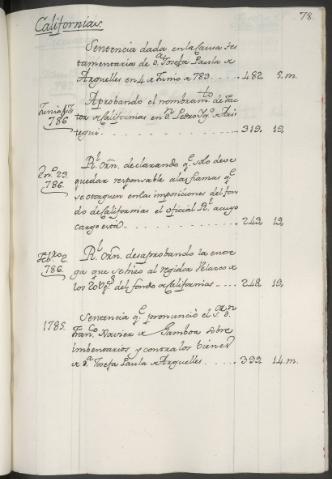 78.
Californias.
Sentencia dada en la Causa tes
tamentaria de D.ª Josefa Paula de
Arguelles en 4 de Junio de 783 . . 482 9.m.
Aprobando el nombram.to de Fac
786. tor de Californias en D. Pedro Ign.o de Aris
tegui . . . . . . . . . 319. 19.
En.o 23. R.l Orn. declarando q.e solo deve
786. quedar responsable a las fianzas q.e
se otorguen en las imposiciones del fon
do de Californias el oficial R.l a cuyo
cargo está . . . . . . . . 242 19
R.l Orn. desaprobando la entre
786. ga que se hizo al Regidor
los 20 p. del fondo de Californias . . . . 248 19.
Sentencia q.e pronunció el S.or D.
1785. Fran.co Xavier de Gamboa sobre
imbentarios y contra los bienes
de D.ª Josefa Paula de Arguelles . . . . 392 14.m.